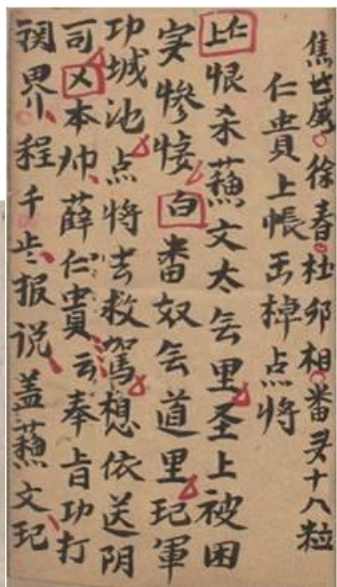 焦世威。徐春。杜卯相。番叐十八粒
仁貴上帳棹点将
仁上恨杀蘓文太里圣上被困
寔惨悽白番奴道里玘軍
功城池点将去救駕想依送阴
司乂本帅薛仁貴云奉旨功打
関界程千岁报说盖蘓文玘